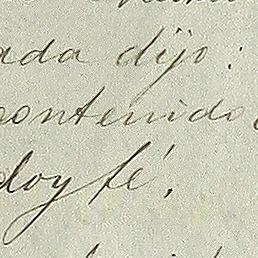 ada dijo:
contenido
doy fé,